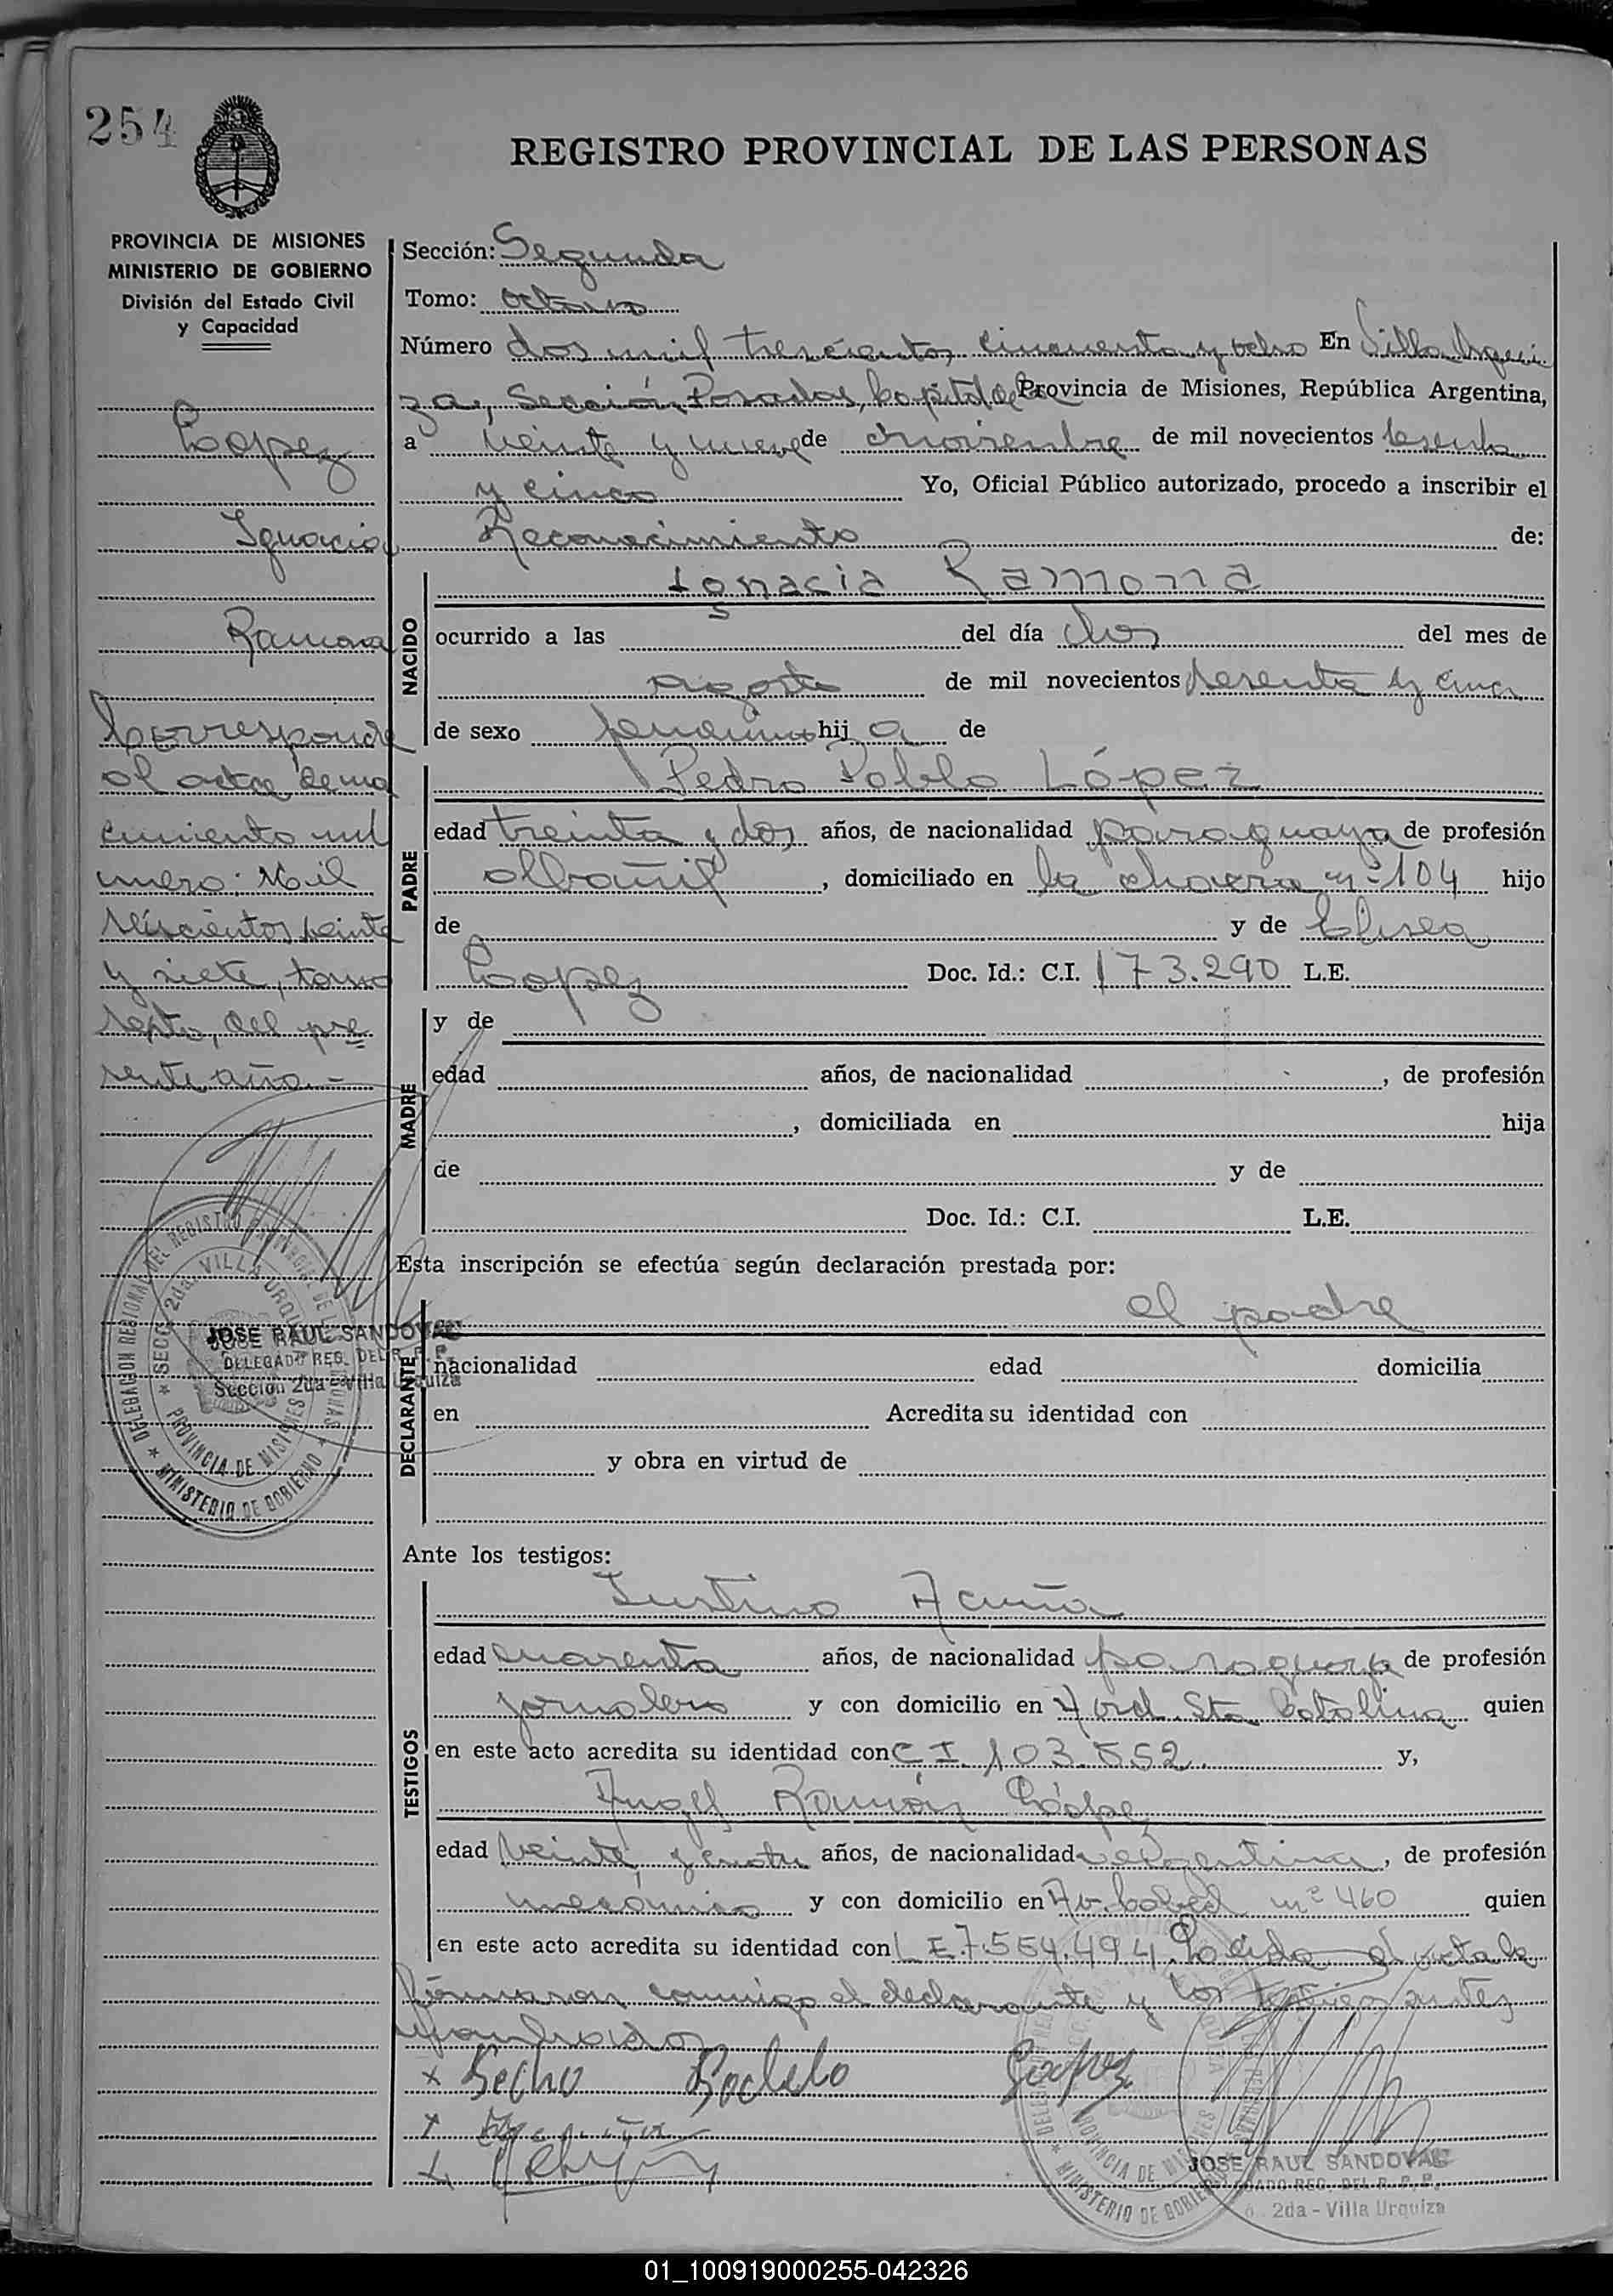 254
REGISTRO PROVINCIAL DE LAS PERSONAS
PROVINCIA DE MISIONES
MINISTERIO DE GOBIERNO
División del Estado Civil
y Capacidad
Lopez
Ignacia
Ramona
Corresponde
al acta de na
cimiento nú
mero: Mil
seiscientos veinte
y siete, tomo
septo, del pre
sente año.-
Sección: Segunda
Tomo: octavo
Número dos mil trescientos cincuenta y ocho En Villa Urqui
za, Sección Posadas, Capital de Provincia de Misiones, República Argentina,
a veinte y nueve de noviembre de mil novecientos sesenta
y cinco Yo, Oficial Público autorizado, procedo a inscribir el
Reconocimiento de:
NACIDO
Ignacia Ramona
ocurrido a las del día dos del mes de
agosto de mil novecientos sesenta y cinco
de sexo femenino hij a de
PADRE
Pedro Pablo López
edad treinta y dos años, de nacionalidad paraguaya de profesión
albañil, domiciliado en la chacra nº 104 hijo
de y de Elisea
Lopez Doc. Id.: C.I. 173.290 L.E.
MADRE
y de
edad años, de nacionalidad , de profesión
, domiciliada en hija
de y de
Doc. Id.: C.I. L.E.
Esta inscripción se efectúa según declaración prestada por:
DECLARANTE
el padre
nacionalidad edad domicilia
en Acredita su identidad con
y obra en virtud de
Ante los testigos:
TESTIGOS
Justino Acuña
edad cuarenta años, de nacionalidad paraguaya de profesión
jornalero y con domicilio en Sta Catalina quien
en este acto acredita su identidad con C I 103.552. y,
Angel Ramón
edad veinte y cuatro años, de nacionalidad argentina, de profesión
mecánico y con domicilio en Av. nº 460 quien
en este acto acredita su identidad con L E.7.554.494. Leída el acta la
firmaron conmigo el declarante y los testigos antes
nombrados
x Pedro Pablo Lopez
DELEGACION REGIONAL DEL REGISTRO PROVINCIAL DE LAS PERSONAS
SECC. 2da. VILLA URQUIZA
PROVINCIA DE MISIONES
MINISTERIO DE GOBIERNO
JOSE RAUL SANDOVAL
DELEGADO REG. DEL R. P. P.
Sección 2da - Villa Urquiza
JOSE RAUL SANDOVAL
DELEGADO REG. DEL R. P. P.
2da - Villa Urquiza
01_100919000255-042326